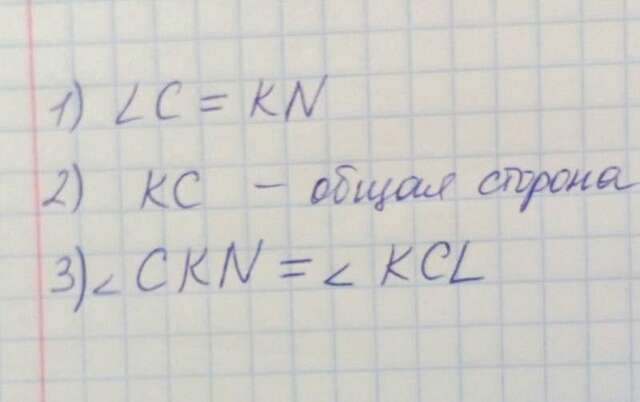 1) LC = KN
2) KC — общая сторона
3) ∠CKN = ∠KCL